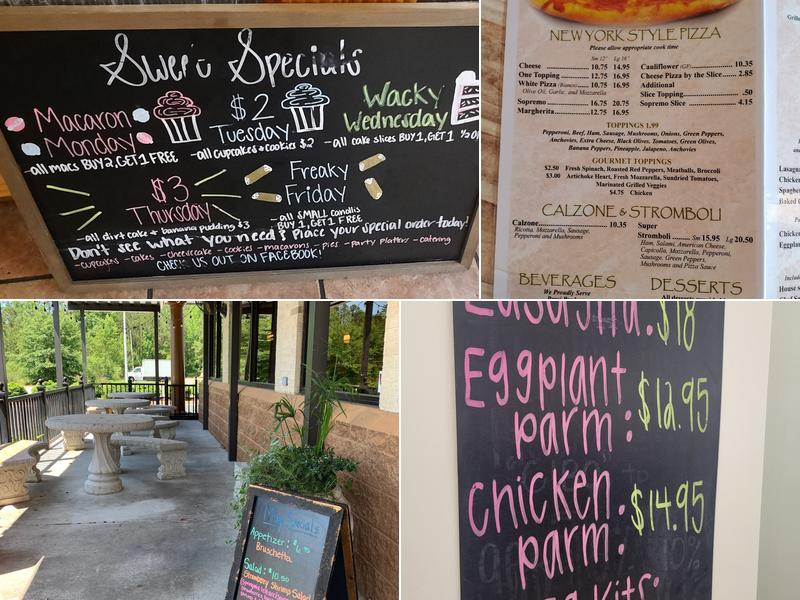 Sweet Specials
Macaron
Monday
-all macs BUY 2, GET 1 FREE
$2
Tuesday
-all cupcakes & cookies $2
Wacky
Wednesday
-all cake slices BUY 1, GET 1
$3
Thursday
-all dirt cake & banana pudding $3
Freaky
Friday
-all SMALL canolis
BUY 1, GET 1 FREE
Don't see what you need? Place your special order today!
-cupcakes -cakes -cheesecake -cookies -macarons -pies -party platter -catering
CHECK US OUT ON FACEBOOK!
NEW YORK STYLE PIZZA
Please allow appropriate cook time
Sm 12" Lg 16"
Cheese 10.75 14.95
One Topping 12.75 16.95
White Pizza (Bianco) 10.75 16.95
Olive Oil, Garlic, and Mozzarella
Sopremo 16.75 20.75
Margherita 12.75 16.95
Cauliflower (GF) 10.35
Cheese Pizza by the Slice 2.85
Additional
Slice Topping .50
Sopremo Slice 4.15
TOPPINGS 1.99
Pepperoni, Beef, Ham, Sausage, Mushrooms, Onions, Green Peppers,
Anchovies, Extra Cheese, Black Olives, Tomatoes, Green Olives,
Banana Peppers, Pineapple, Jalapeno, Anchovies
GOURMET TOPPINGS
$2.50 Fresh Spinach, Roasted Red Peppers, Meatballs, Broccoli
$3.00 Artichoke Heart, Fresh Mozzarella, Sundried Tomatoes,
Marinated Grilled Veggies
$4.75 Chicken
CALZONE & STROMBOLI
Calzone 10.35
Ricotta, Mozzarella, Sausage,
Pepperoni and Mushrooms
Super
Stromboli Sm 15.95 Lg 20.50
Ham, Salami, American Cheese,
Capicolla, Mozzarella, Pepperoni,
Sausage, Green Peppers,
Mushrooms and Pizza Sauce
BEVERAGES
We Proudly Serve
DESSERTS
Lasagna
Chicken
Spaghe
Baked
Chicken
Eggplan
House
May Specials
Appetizer:
Bruschetta
Salad: $10.50
Strawberry Shrimp Salad
Lasagna: $18
Eggplant
parm: $12.95
Chicken
parm: $14.95
Kits: